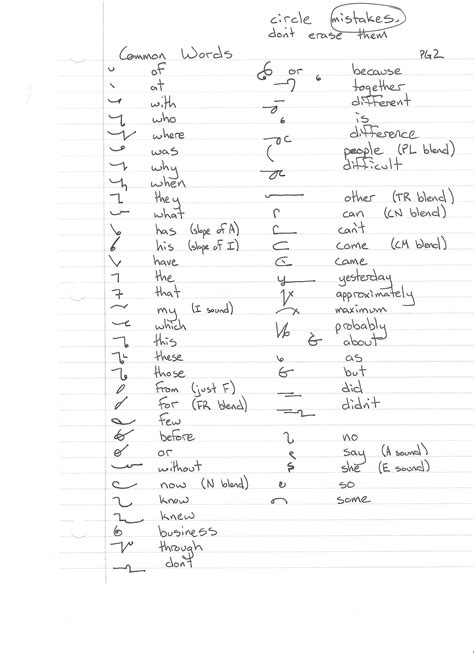 circle mistakes.
don't erase them
Common Words PG2
of or because
at together
with different
who is
where difference
was people (PL blend)
why difficult
when
they other (TR blend)
what can (CN blend)
has (slope of A) can't
his (slope of I) come (CM blend)
have came
the yesterday
that approximately
my (I sound) maximum
which probably
this about
these as
those but
from (just F) did
for (FR blend) didn't
few
before no
or say (A sound)
without she (E sound)
now (N blend) so
know some
knew
business
through
don't